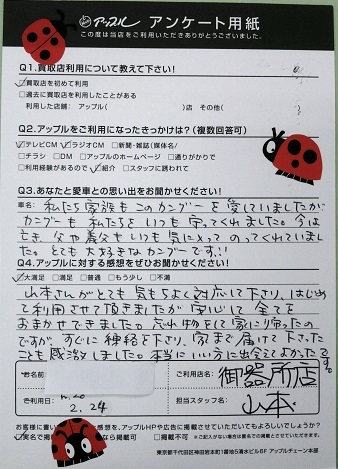 アップル アンケート用紙
この度は当店をご利用いただきありがとうございました。
Q1.買取店利用について教えて下さい!
☑買取店を初めて利用
□過去に買取店を利用したことがある
利用した店舗: アップル( )店 その他( )
Q2.アップルをご利用になったきっかけは?(複数回答可)
☑テレビCM ☑ラジオCM □新聞・雑誌(媒体名)
□チラシ □DM □アップルのホームページ □通りがかりで
□利用経験があるので ☑紹介 □スタッフに誘われて
Q3.あなたと愛車との思い出をお聞かせください!
車名: 私たち家族もこのカングーを愛していましたが
カングーも私たちをいつも守ってくれました。今は
亡き父や義父もいつも気に入ってのってくれていまし
た。とても大好きなカングーです!!
Q4.アップルに対する感想をぜひお聞かせください!
☑大満足 □満足 □普通 □もう少し □不満
山本さんがとても気もちよく対応して下さり、はじめ
て利用させて頂きましたが安心して全てを
おまかせできました。忘れ物をして家に帰ったの
ですが、すぐに連絡を下さり、家まで届けて下さった
ことも感激しました。本当にいい方に出会えてよかったです。
お名前
ご利用店名: 御器所店
ご利用日
2.24
担当スタッフ名: 山本
感想を、アップルHPや広告に掲載させていただいてもよろしいでしょうか?
☑実名で掲載可 なら掲載可 □掲載不可 ※ご記入がない場合は匿名での掲載とさせていただきます。
東京都千代田区神田岩本町1番地5清水ビル6F アップルチェーン本部